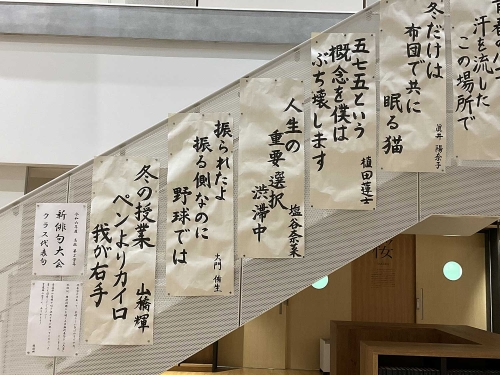 汗を流した
この場所で
冬だけは
布団で共に
眠る猫
眞井 陽奈子
五七五という
概念を僕は
ぶち壊します
植田蓮士
人生の
重要選択
渋滞中
塩谷奈菜
振られたよ
振る側なのに
野球では
大門 侑生
冬の授業
ペンよりカイロ
我が右手
山橋輝
新俳句大会
クラス代表句